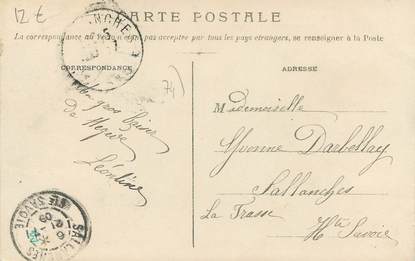 12 €
CARTE POSTALE
La correspondance au verso n'est pas acceptée par tous les pays étrangers, se renseigner à la Poste
CORRESPONDANCE
ADRESSE
74)
Mon gros
De Megève
Léontine
Mademoiselle
Yvonne Darbellay
Sallanches
La Frasse
Hte Savoie
SALLANCHES
HTE SAVOIE
09